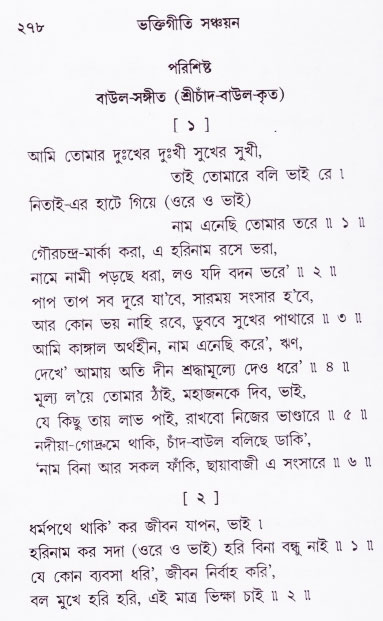 ২৭৮
ভক্তিগীতি সঞ্চয়ন
পরিশিষ্ট
বাউল-সঙ্গীত (শ্রীচাঁদ-বাউল-কৃত)
[ ১ ]
আমি তোমার দুঃখের দুঃখী সুখের সুখী,
তাই তোমারে বলি ভাই রে ।
নিতাই-এর হাটে গিয়ে (ওরে ও ভাই)
নাম এনেছি তোমার তরে ॥ ১ ॥
গৌরচন্দ্র-মার্কা করা, এ হরিনাম রসে ভরা,
নামে নামী পড়ছে ধরা, লও যদি বদন ভরে’ ॥ ২ ॥
পাপ তাপ সব দূরে যা’বে, সারময় সংসার হ’বে,
আর কোন ভয় নাহি রবে, ডুববে সুখের পাথারে ॥ ৩ ॥
আমি কাঙ্গাল অর্থহীন, নাম এনেছি করে’, ঋণ,
দেখে’ আমায় অতি দীন শ্রদ্ধামূল্যে দেও ধরে’ ॥ ৪ ॥
মূল্য ল’য়ে তোমার ঠাঁই, মহাজনকে দিব, ভাই,
যে কিছু তায় লাভ পাই, রাখবো নিজের ভাণ্ডারে ॥ ৫ ॥
নদীয়া-গোদ্রুমে থাকি, চাঁদ-বাউল বলিছে ডাকি’,
‘নাম বিনা আর সকল ফাঁকি, ছায়াবাজী এ সংসারে ॥ ৬ ॥
[ ২ ]
ধর্মপথে থাকি’ কর জীবন যাপন, ভাই ।
হরিনাম কর সদা (ওরে ও ভাই) হরি বিনা বন্ধু নাই ॥ ১ ॥
যে কোন ব্যবসা ধরি’, জীবন নির্বাহ করি’,
বল মুখে হরি হরি, এই মাত্র ভিক্ষা চাই ॥ ২ ॥